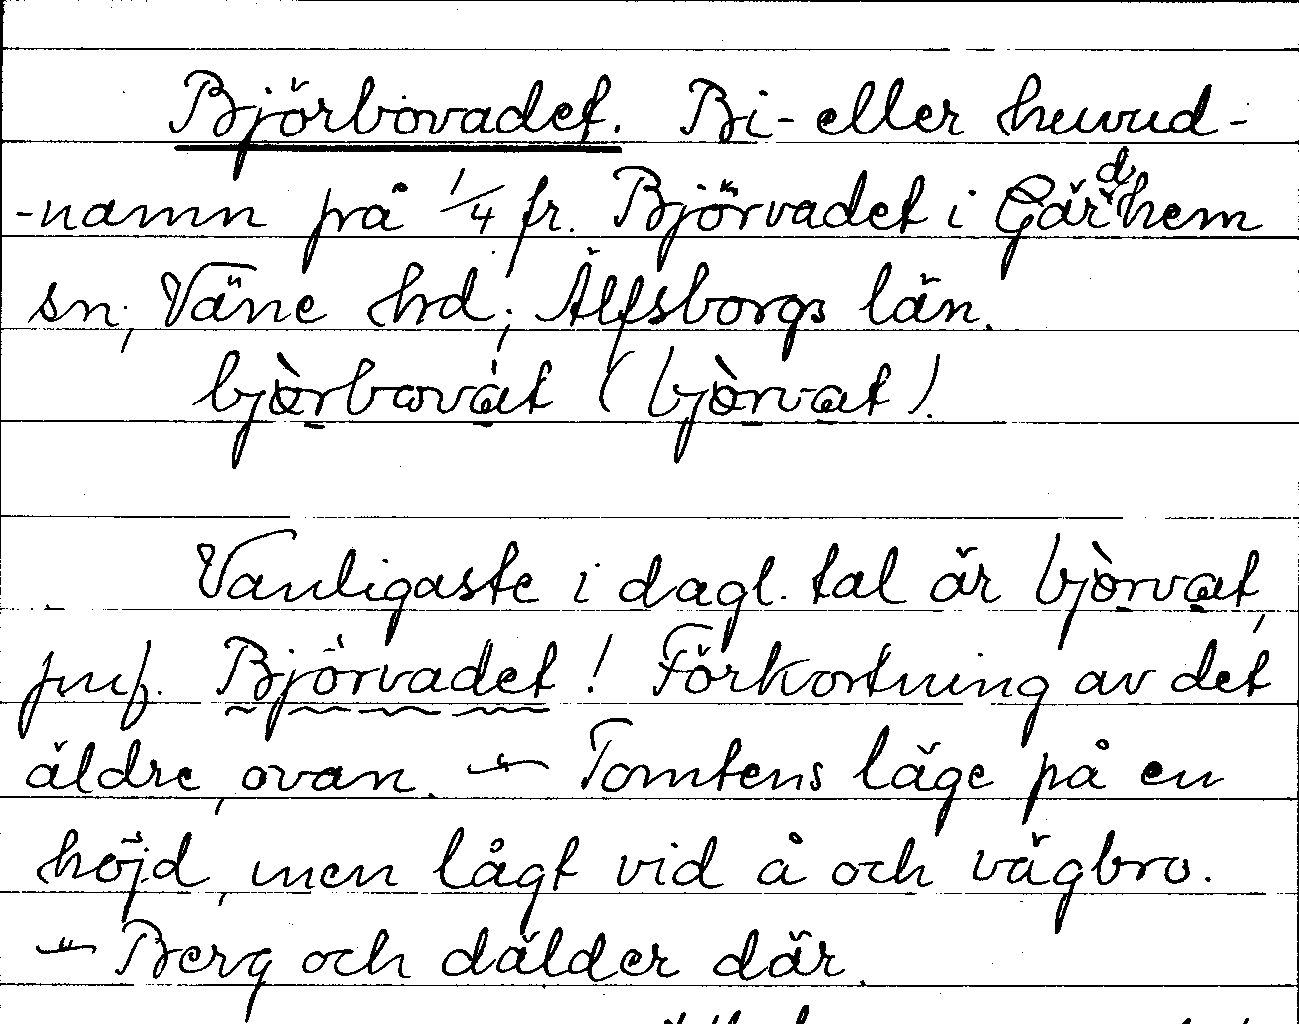 Björbovadet. Bi- eller huvud-
-namn på 1/4 fr. Björvadet i Gärdhem
sn; Väne hrd; Älfsborgs län.
bjòrbovàt (bjòrvat)!
Vanligaste i dagl. tal är bjòrvat,
jmf. Björvadet! Förkortning av det
äldre, ovan. — Tomtens läge på en
höjd, men lågt vid å och vägbro.
— Berg och dälder där.